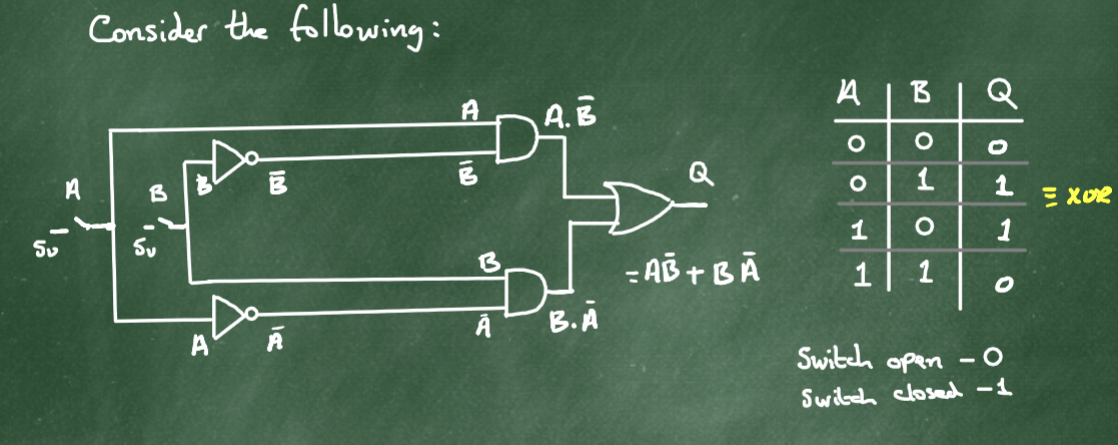 Consider the following:
A A.B̄
B B B̄ B̄
5v 5v
Q
B
A Ā Ā B.Ā
=AB̄ + BĀ
A B Q
0 0 0
0 1 1 ≡ XOR
1 0 1
1 1 0
Switch open - 0
Switch closed - 1
A